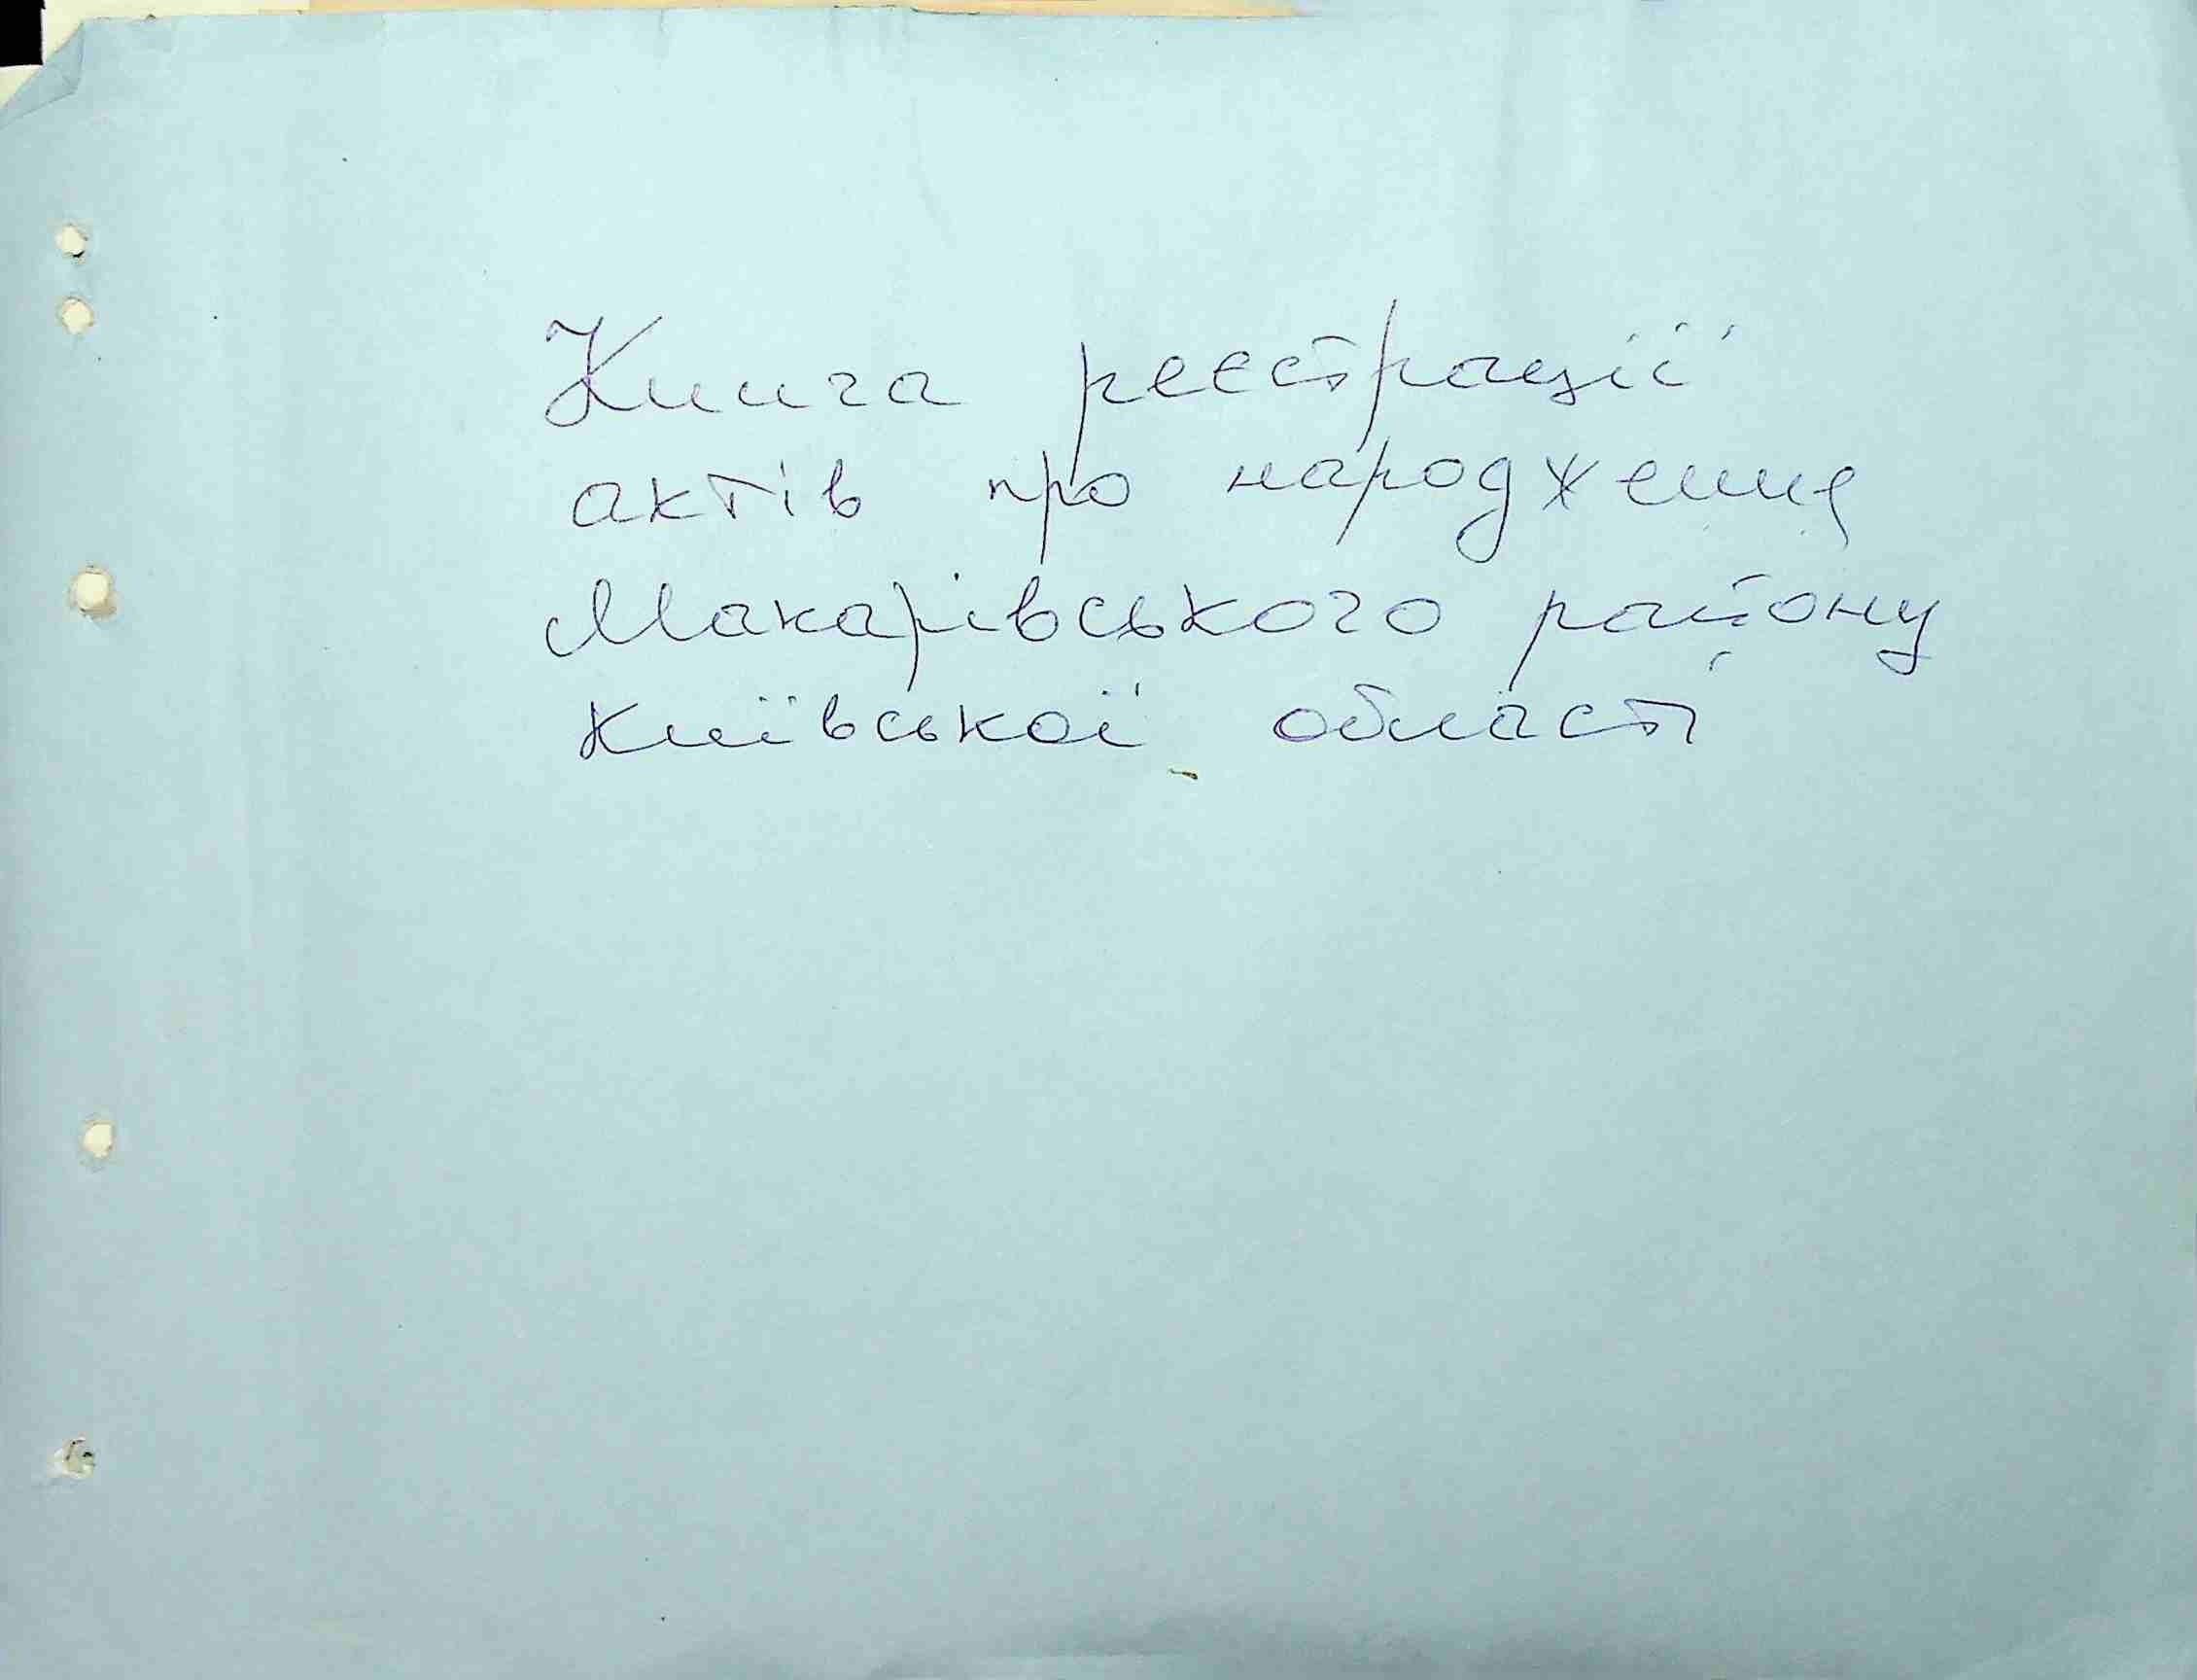 Книга реєстрації
актів про народження
Макарівського району
Київської області